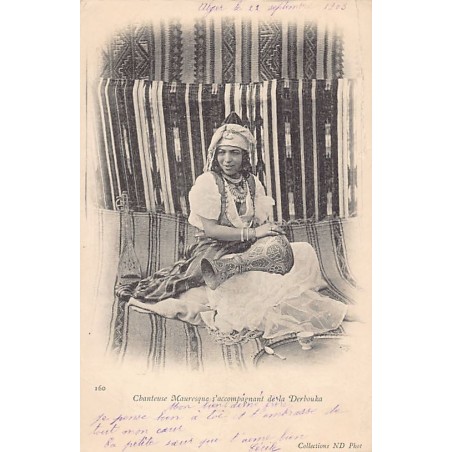 Alger le 22 septembre 1903
160
Chanteuse Mauresque s'accompagnant de la Derbouka
Mon bien
je pense bien à toi et t'embrasse de
tout mon cœur
Ta petite sœur qui t'aime bien
Collections ND Phot